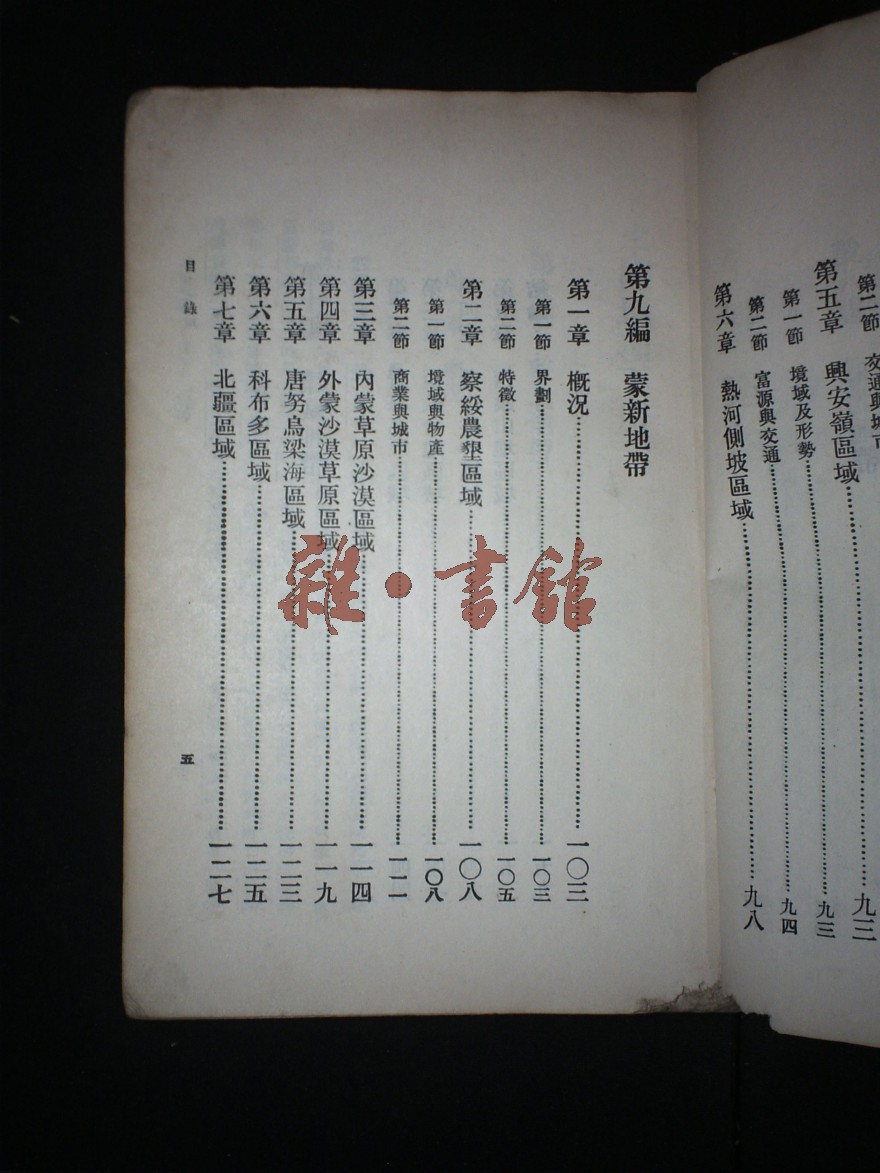 第二節 交通與城市
九三
第五章 興安嶺區域
第一節 境域及形勢……九三
第二節 富源與交通……九四
第六章 熱河側坡區域……九八
第九編 蒙新地帶
第一章 概況……一〇三
第一節 界劃……一〇三
第二節 特徵……一〇五
第二章 察綏農墾區域……一〇八
第一節 境域與物產……一〇八
第二節 商業與城市……一一一
第三章 內蒙草原沙漠區域……一一四
第四章 外蒙沙漠草原區域……一一九
第五章 唐努烏梁海區域……一二三
第六章 科布多區域……一二五
第七章 北疆區域……一二七
目錄
五
雜·書館